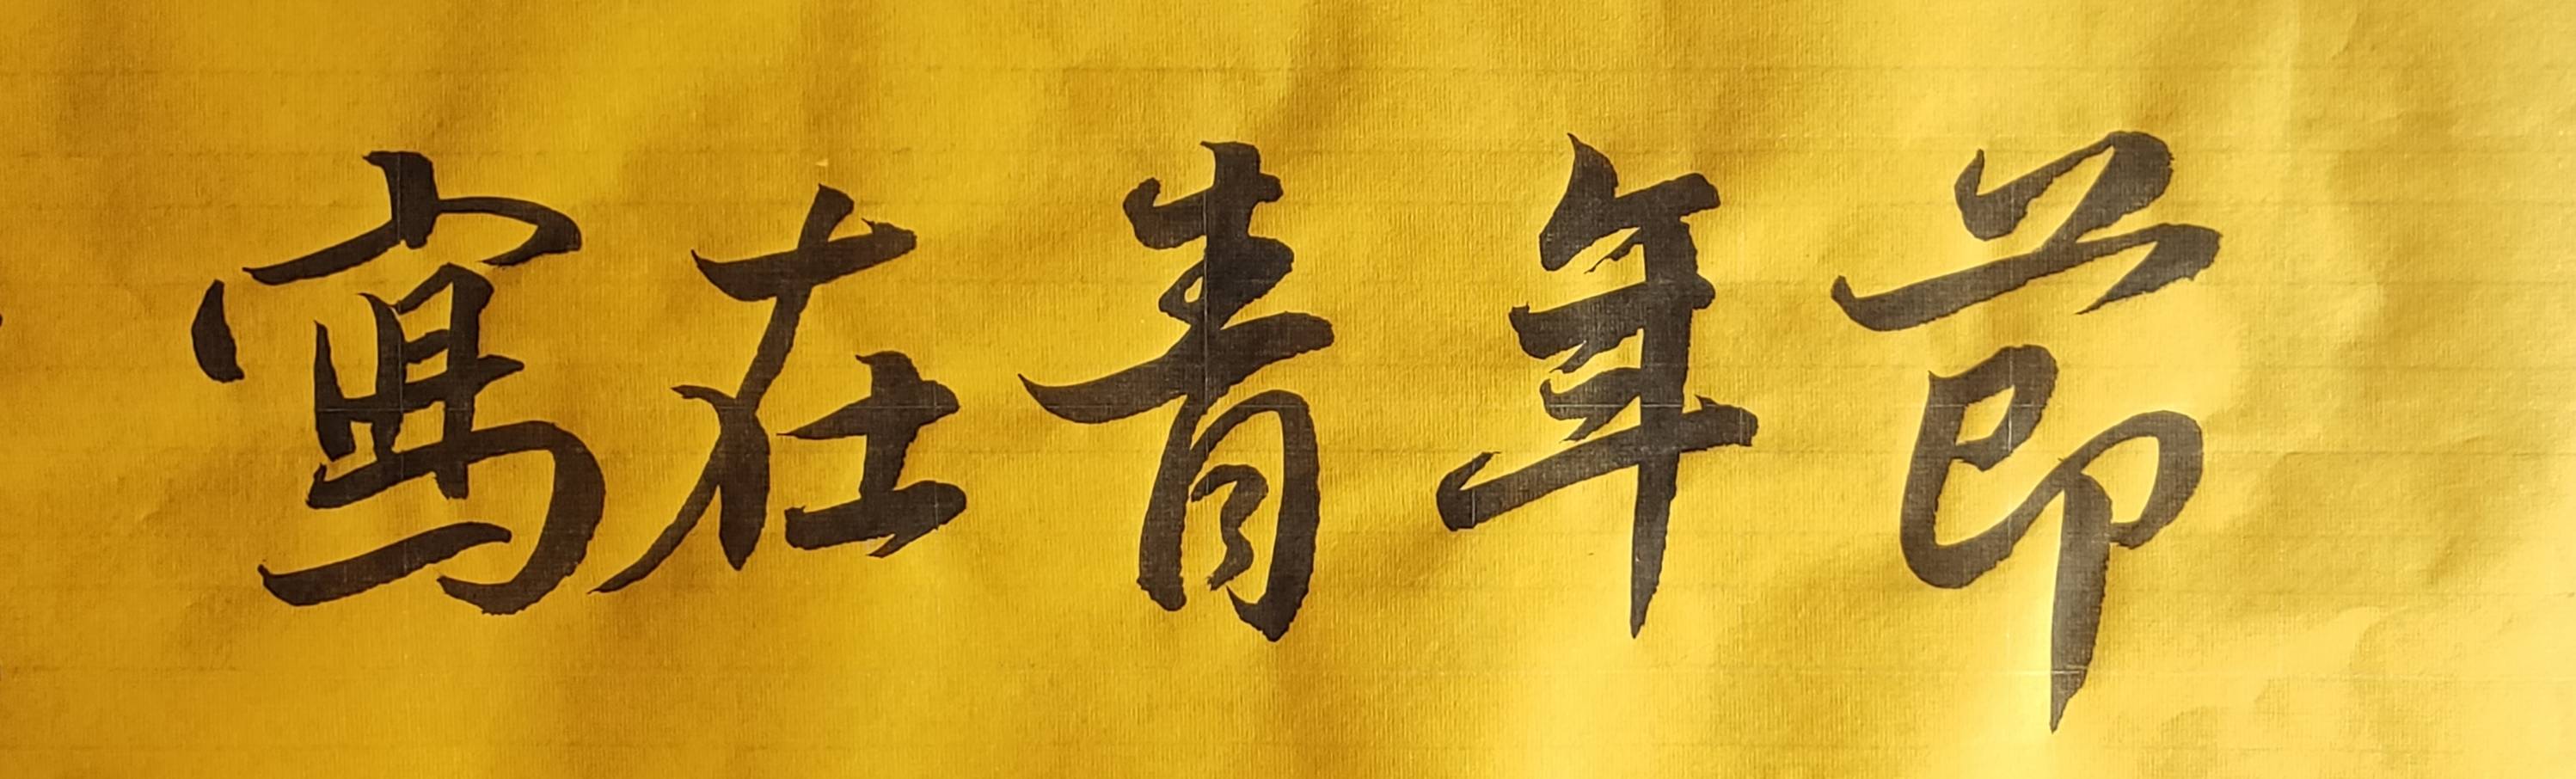 寫在青年節